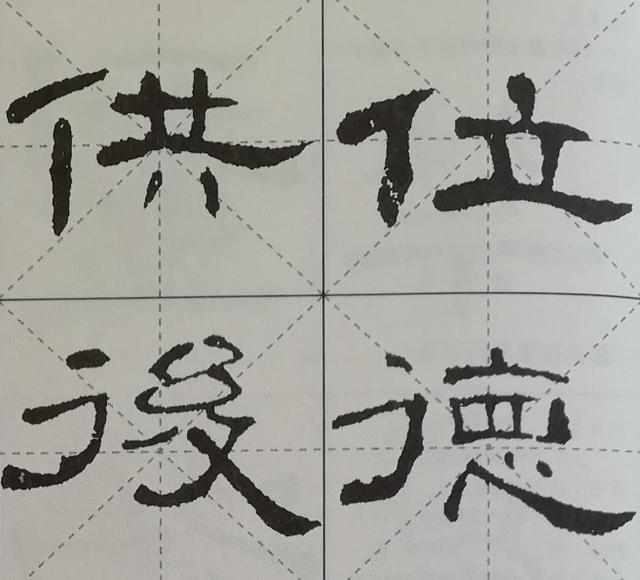 供位
後德